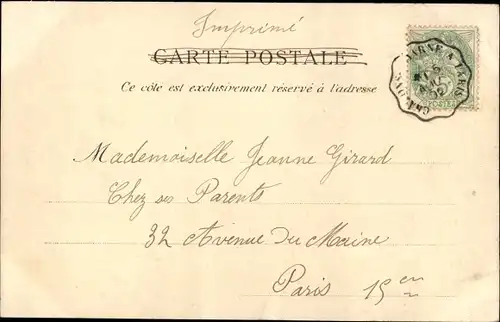 Imprimé
CARTE POSTALE
Ce côté est exclusivement réservé à l'adresse
Mademoiselle Jeanne Girard
Chez ses Parents
32 Avenue du Maine
Paris 15en